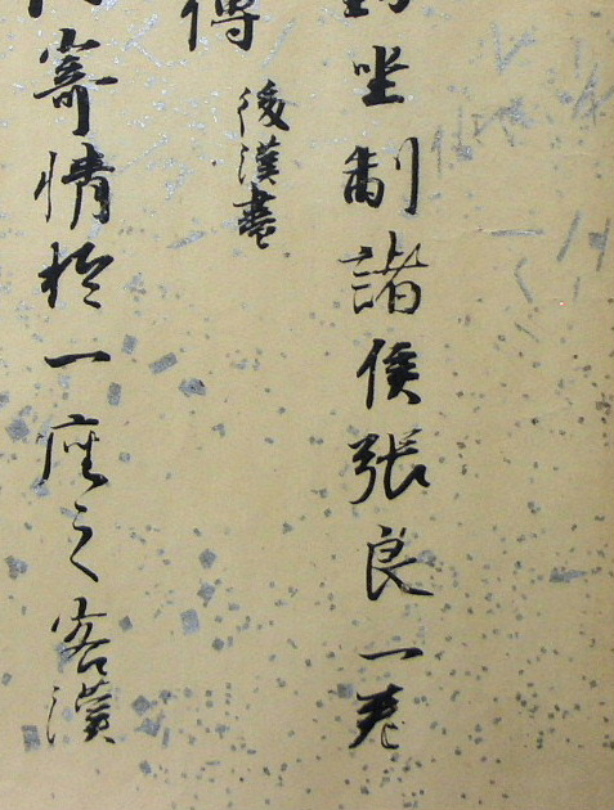 坐制諸侯張良一卷
傅 後漢書
寄情於一座之客漢